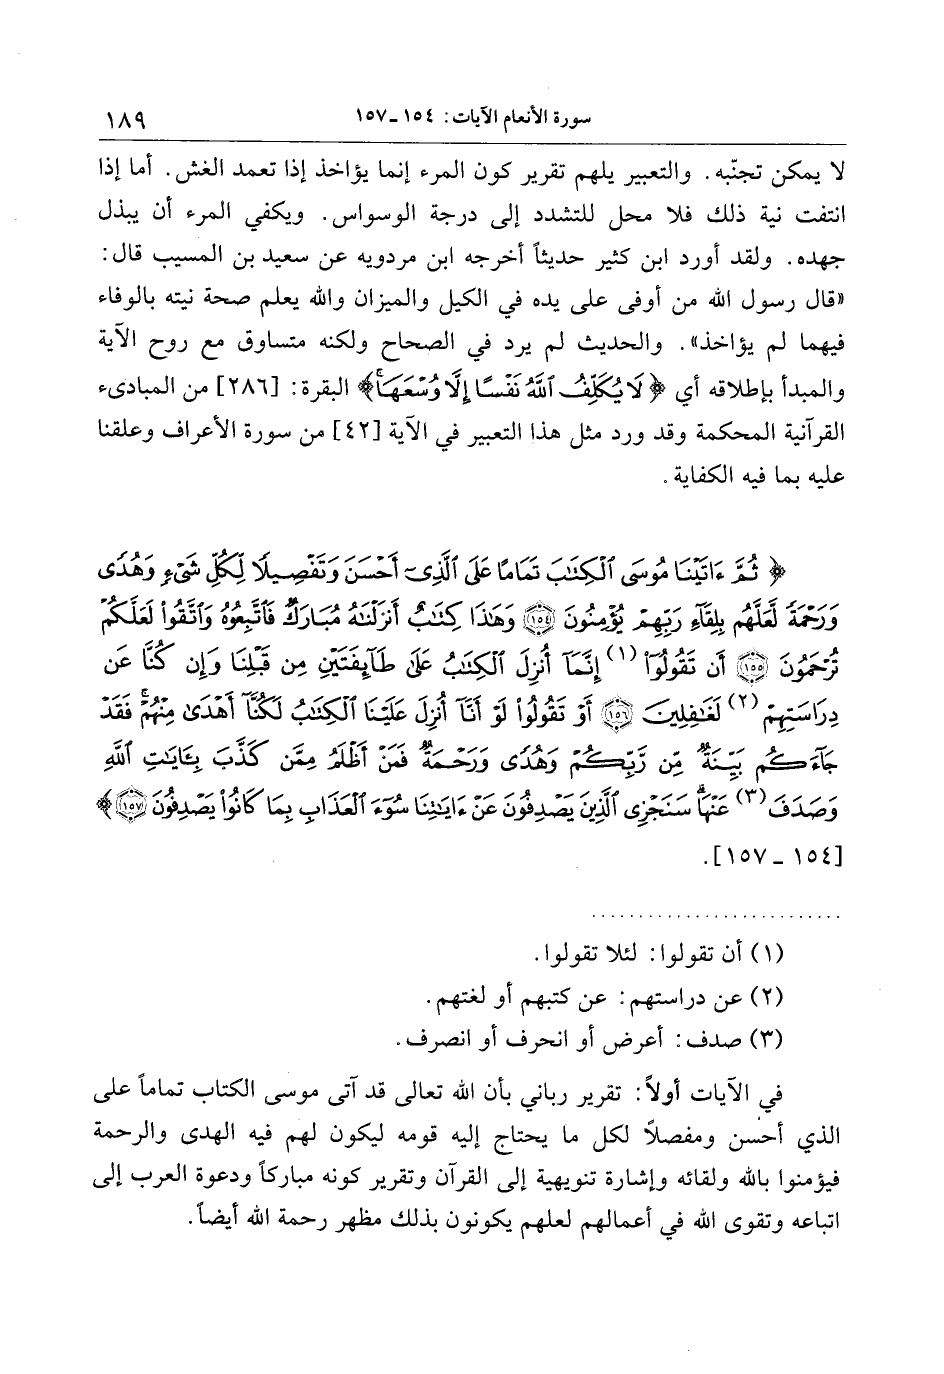 سورة الأنعام الآيات: ١٥٤ ـ ١٥٧ ١٨٩
لا يمكن تجنّبه. والتعبير يلهم تقرير كون المرء إنما يؤاخذ إذا تعمد الغش. أما إذا
انتفت نية ذلك فلا محل للتشدد إلى درجة الوسواس. ويكفي المرء أن يبذل
جهده. ولقد أورد ابن كثير حديثاً أخرجه ابن مردويه عن سعيد بن المسيب قال:
«قال رسول الله من أوفى على يده في الكيل والميزان والله يعلم صحة نيته بالوفاء
فيهما لم يؤاخذ». والحديث لم يرد في الصحاح ولكنه متساوق مع روح الآية
والمبدأ بإطلاقه أي ﴿لَا يُكَلِّفُ ٱللَّهُ نَفْسًا إِلَّا وُسْعَهَاۚ﴾ البقرة: [٢٨٦] من المبادىء
القرآنية المحكمة وقد ورد مثل هذا التعبير في الآية [٤٢] من سورة الأعراف وعلقنا
عليه بما فيه الكفاية.
﴿ثُمَّ ءَاتَيْنَا مُوسَى ٱلْكِتَٰبَ تَمَامًا عَلَى ٱلَّذِىٓ أَحْسَنَ وَتَفْصِيلًا لِّكُلِّ شَىْءٍ وَهُدًى
وَرَحْمَةً لَّعَلَّهُم بِلِقَآءِ رَبِّهِمْ يُؤْمِنُونَ ١٥٤ وَهَٰذَا كِتَٰبٌ أَنزَلْنَٰهُ مُبَارَكٌ فَٱتَّبِعُوهُ وَٱتَّقُوا۟ لَعَلَّكُمْ
تُرْحَمُونَ ١٥٥ أَن تَقُولُوٓا۟ (١) إِنَّمَآ أُنزِلَ ٱلْكِتَٰبُ عَلَىٰ طَآئِفَتَيْنِ مِن قَبْلِنَا وَإِن كُنَّا عَن
دِرَاسَتِهِمْ (٢) لَغَٰفِلِينَ ١٥٦ أَوْ تَقُولُوا۟ لَوْ أَنَّآ أُنزِلَ عَلَيْنَا ٱلْكِتَٰبُ لَكُنَّآ أَهْدَىٰ مِنْهُمْۚ فَقَدْ
جَآءَكُم بَيِّنَةٌ مِّن رَّبِّكُمْ وَهُدًى وَرَحْمَةٌۚ فَمَنْ أَظْلَمُ مِمَّن كَذَّبَ بِـَٔايَٰتِ ٱللَّهِ
وَصَدَفَ (٣) عَنْهَاۗ سَنَجْزِى ٱلَّذِينَ يَصْدِفُونَ عَنْ ءَايَٰتِنَا سُوٓءَ ٱلْعَذَابِ بِمَا كَانُوا۟ يَصْدِفُونَ ١٥٧﴾
[١٥٤ ـ ١٥٧].
(١) أن تقولوا: لئلا تقولوا.
(٢) عن دراستهم: عن كتبهم أو لغتهم.
(٣) صدف: أعرض أو انحرف أو انصرف.
في الآيات أولاً: تقرير رباني بأن الله تعالى قد آتى موسى الكتاب تماماً على
الذي أحسن ومفصلاً لكل ما يحتاج إليه قومه ليكون لهم فيه الهدى والرحمة
فيؤمنوا بالله ولقائه وإشارة تنويهية إلى القرآن وتقرير كونه مباركاً ودعوة العرب إلى
اتباعه وتقوى الله في أعمالهم لعلهم يكونون بذلك مظهر رحمة الله أيضاً.